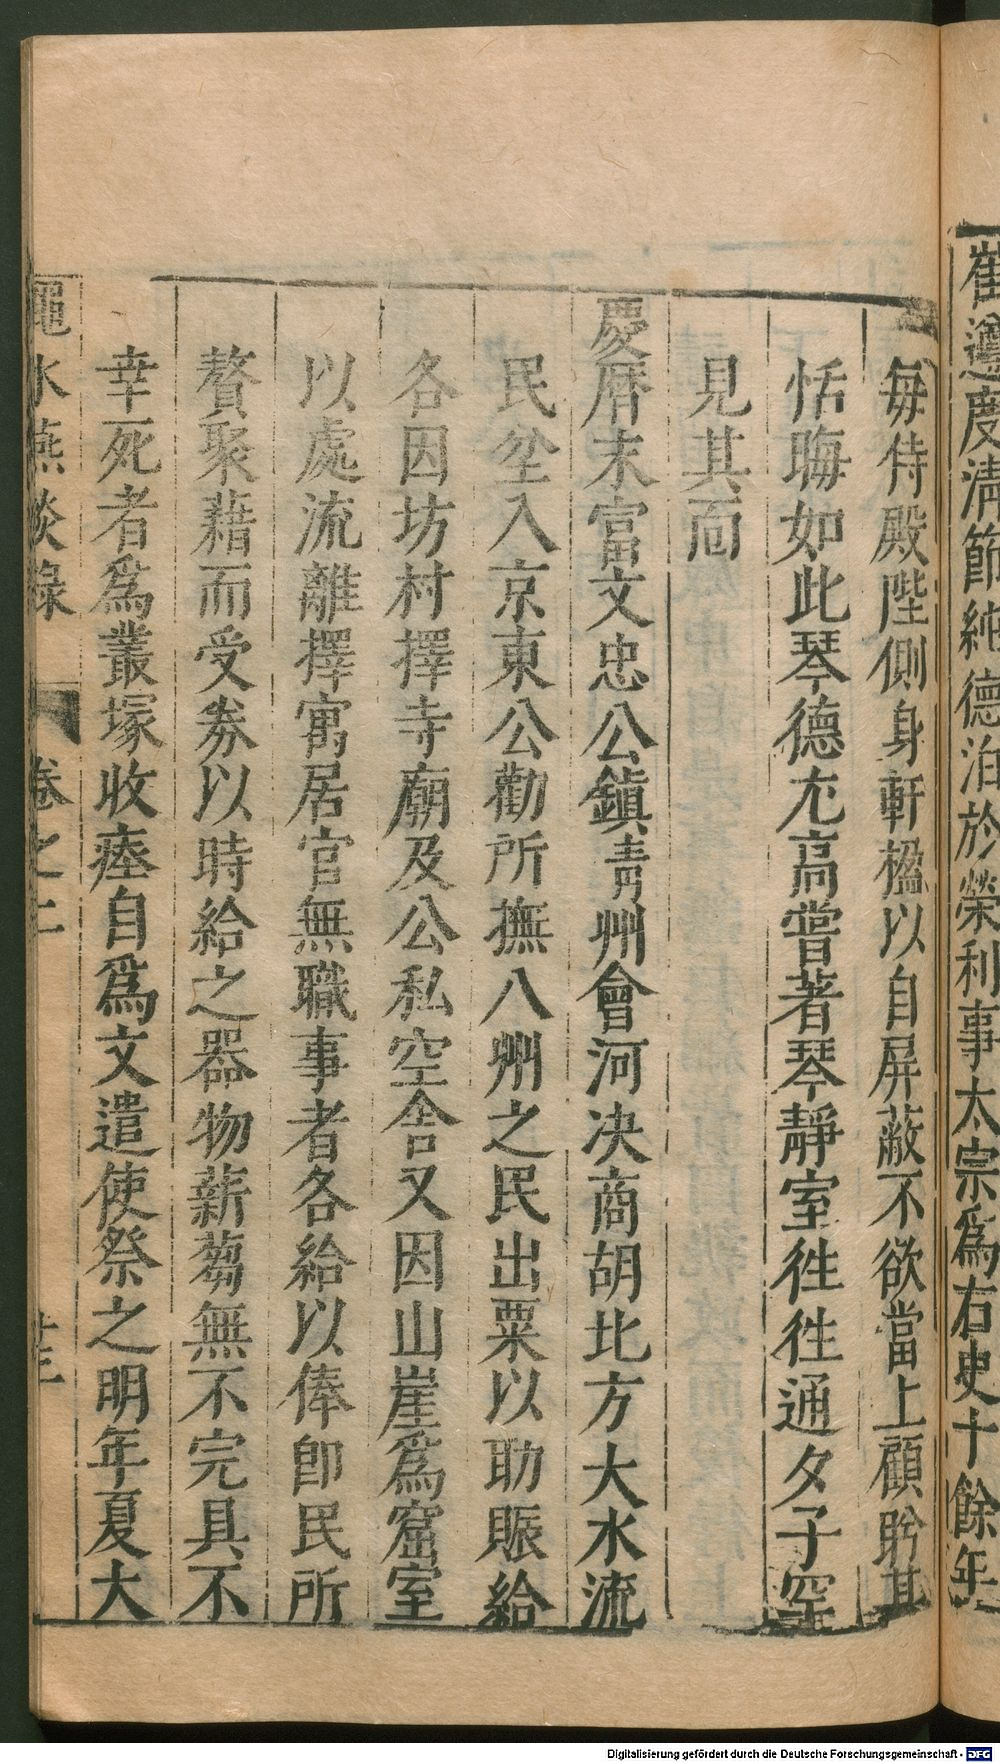 崔遵度清節純德泊於榮利事太宗爲右史十餘年
每侍殿陛側身軒楹以自屏蔽不欲當上顧盻其
恬晦如此琴德尤高嘗著琴靜室徃徃通夕子罕
見其面
慶曆末富文忠公鎮青州會河决商胡北方大水流
民坌入京東公勸所撫八州之民出粟以助賑給
各因坊村擇寺廟及公私空舍又因山崖爲窟室
以處流離擇寓居官無職事者各給以俸卽民所
贅聚藉而受劵以時給之器物薪蒭無不完具不
幸死者爲叢塚收瘞自爲文遣使祭之明年夏大
澠水燕談錄 卷之二 廿三
Digitalisierung gefördert durch die Deutsche Forschungsgemeinschaft - DFG